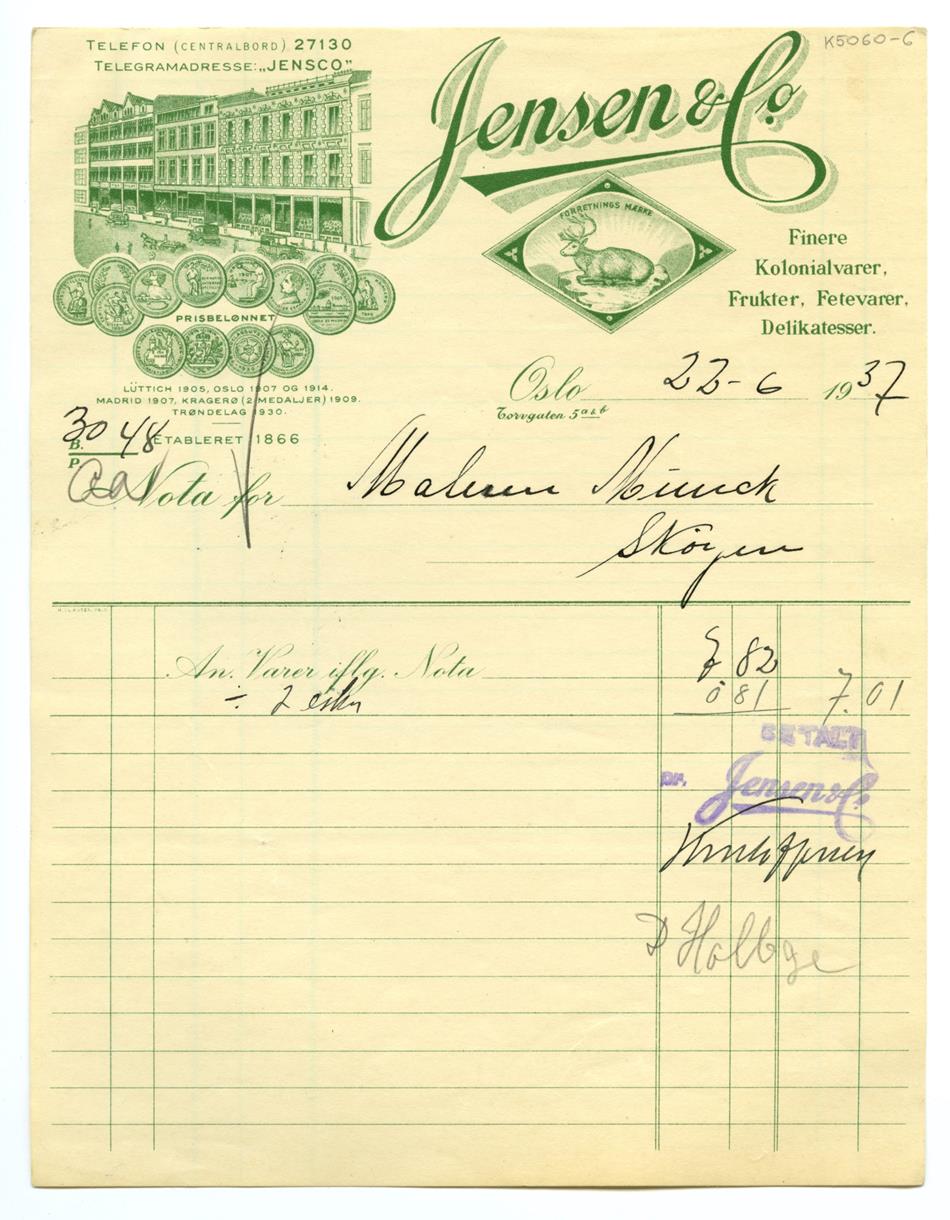 K5060-6
TELEFON (CENTRALBORD) 27130
TELEGRAMADRESSE: „JENSCO"
Jensen & Co.
FORRETNINGS MÆRKE
Finere
Kolonialvarer,
Frukter, Fetevarer,
Delikatesser.
PRISBELØNNET
LÜTTICH 1905, OSLO 1907 OG 1914.
MADRID 1907, KRAGERØ (2 MEDALJER) 1909.
TRØNDELAG 1930.
Oslo 22-6 1937
Torvgaten 5 a & b
B. 3048
ETABLERET 1866
P.
Nota for Maleren Munck
Skøyen
An. Varer iflg. Nota 82
÷ 2 0 81 7.01
BETALT
pr. Jensen & Co.